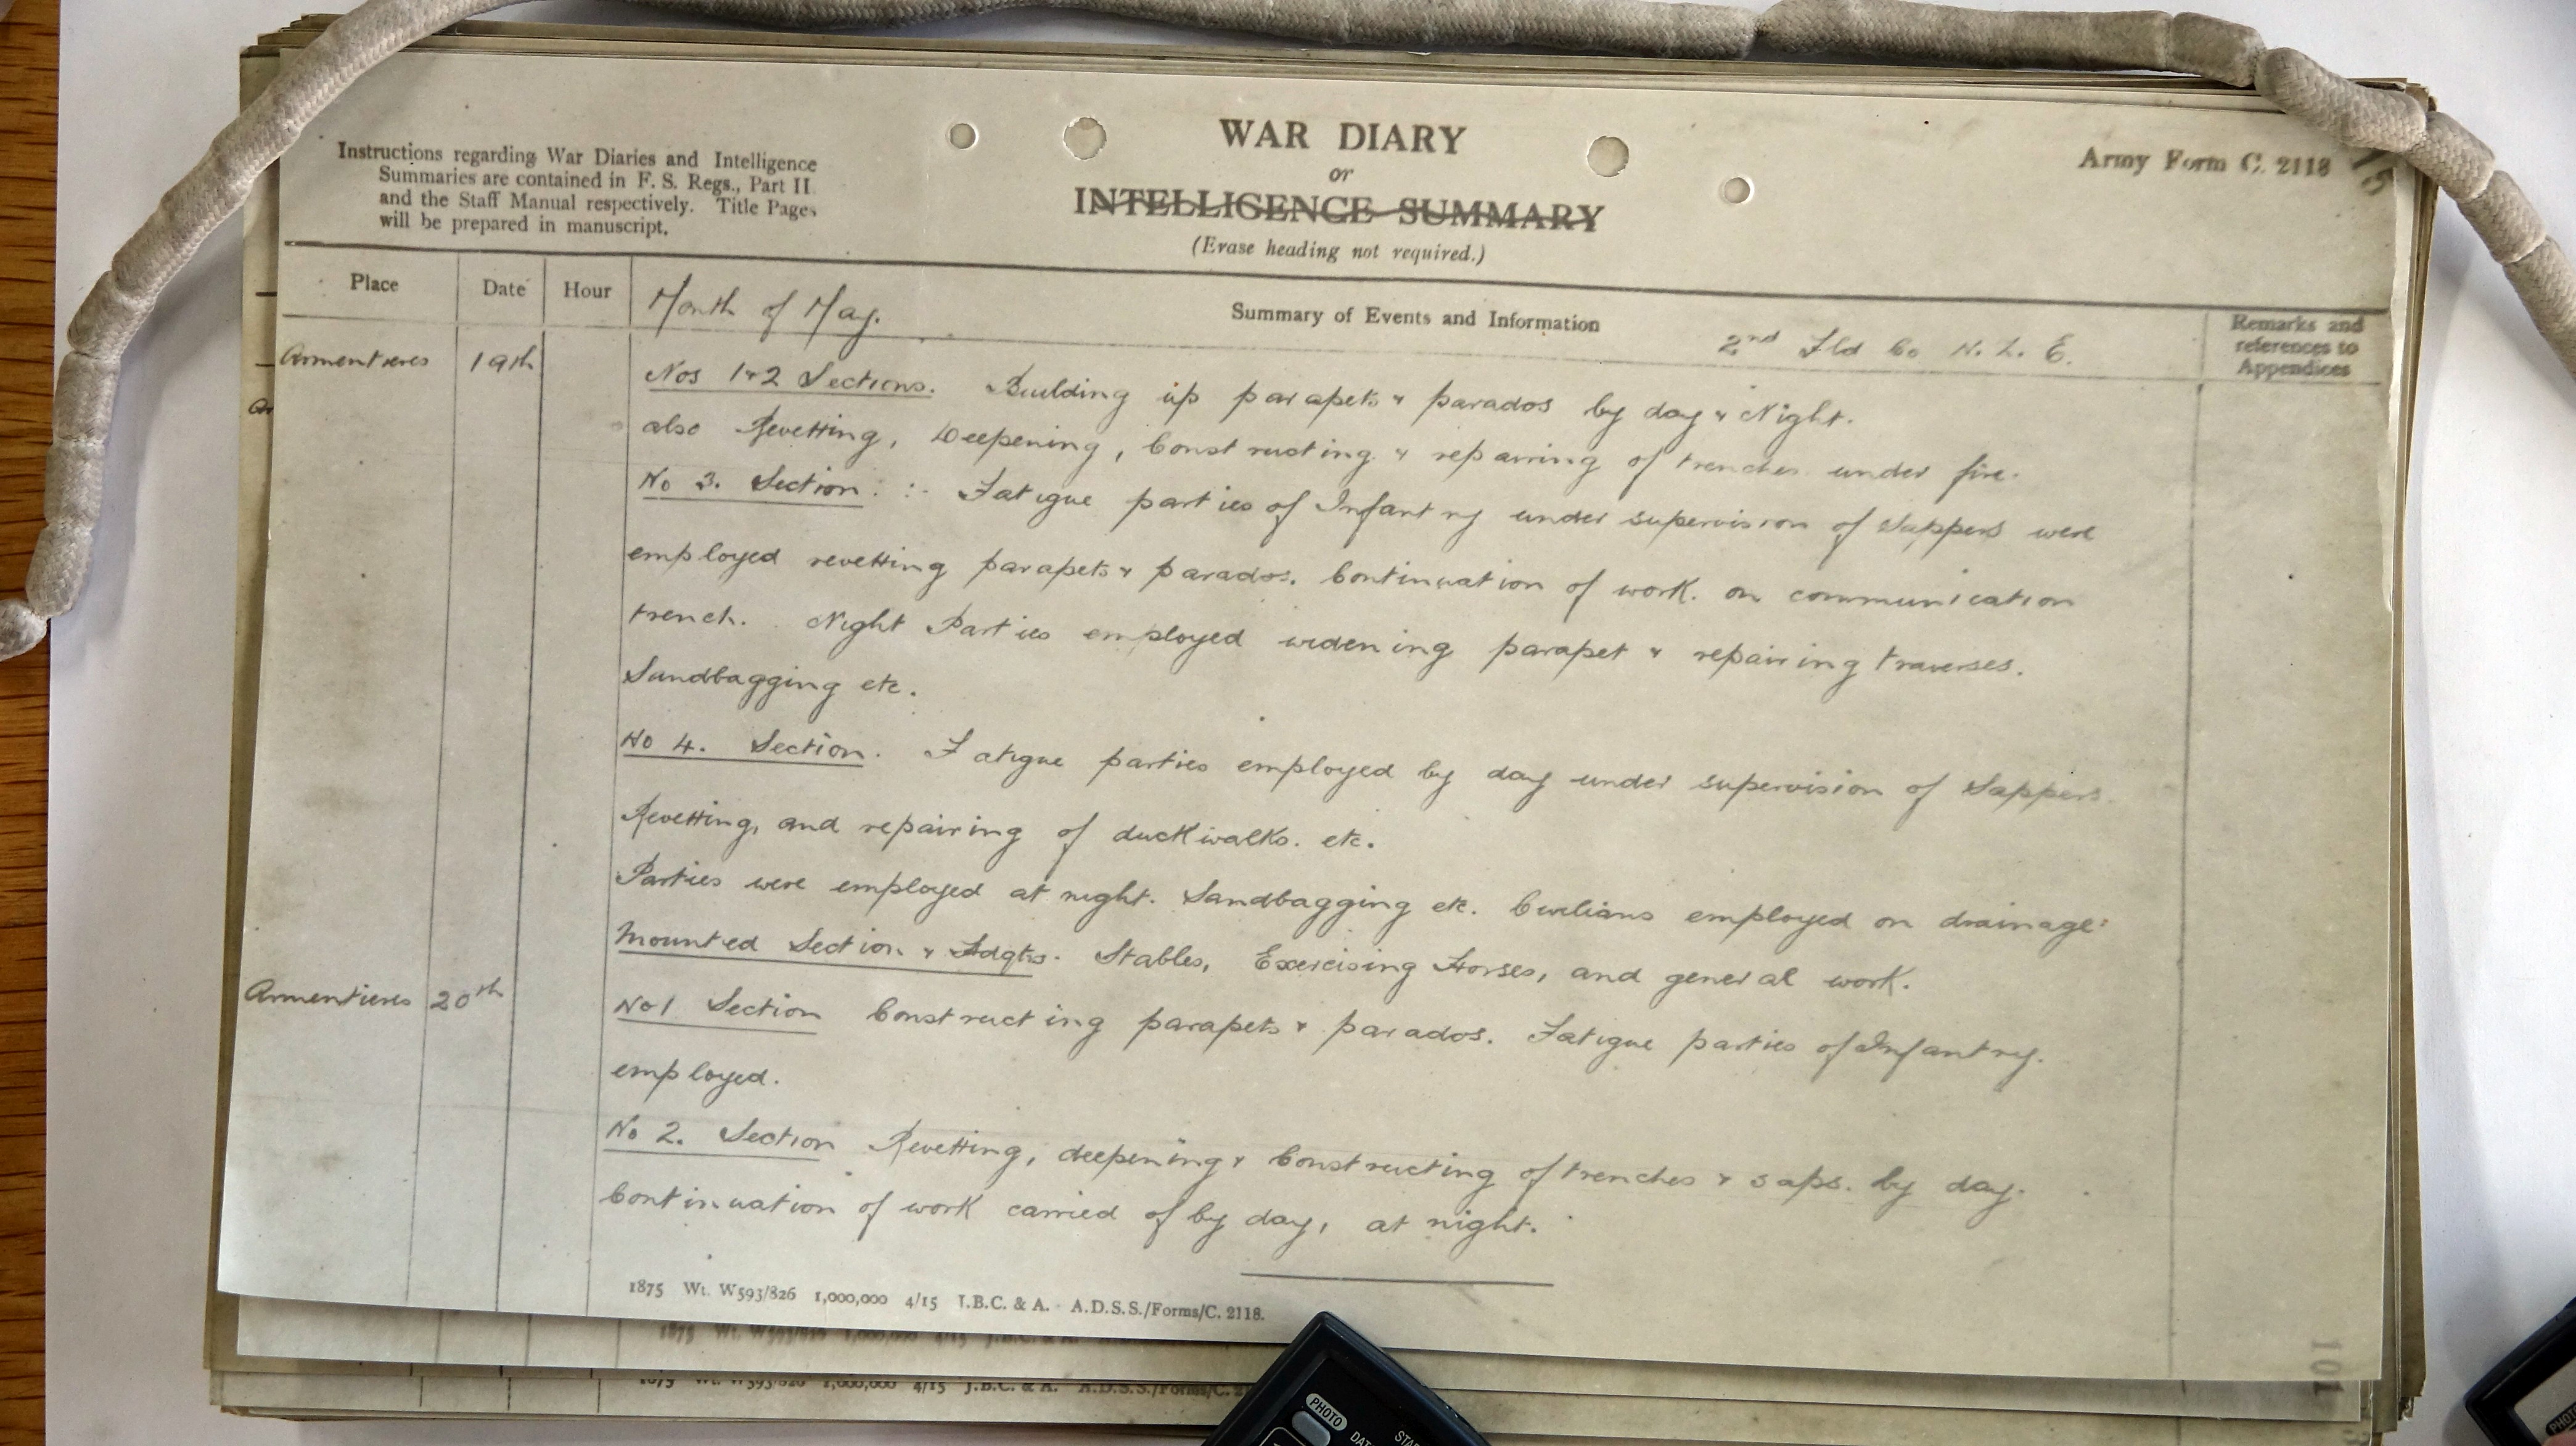 Instructions regarding War Diaries and Intelligence
Summaries are contained in F. S. Regs., Part II
and the Staff Manual respectively. Title Pages
will be prepared in manuscript.
WAR DIARY
or
INTELLIGENCE SUMMARY
(Erase heading not required.)
Army Form C. 2118
15
Place
Date
Hour
Month of May.
Summary of Events and Information
2nd Fld Co
Remarks and
references to
Appendices
Armentieres 19th
Nos 1 & 2 Sections. Building up parapets & parados by day & Night.
also Revetting, Deepening, Constructing & repairing of trenches under fire.
No 3. Section :- Fatigue parties of Infantry under supervision of Sappers were
employed revetting parapets & parados. Continuation of work. on communication
trench. Night Parties employed widening parapet & repairing traverses.
Sandbagging etc.
No 4. Section. Fatigue parties employed by day under supervision of Sappers.
Revetting, and repairing of duckwalks. etc.
Parties were employed at night. Sandbagging etc. Civilians employed on drainage:
Mounted Section & Hdqtrs. Stables, Exercising Horses, and general work.
Armentieres 20th
No 1 Section Constructing parapets & parados. Fatigue parties of Infantry.
employed.
No 2. Section Revetting, deepening & Constructing of trenches & saps. by day.
Continuation of work carried of by day, at night.
1875 Wt. W593/826 1,000,000 4/15 J.B.C. & A. A.D.S.S./Forms/C. 2118.
1875 Wt. W593/826 1,000,000 4/15 J.B.C. & A.
1875 Wt. W593/826 1,000,000 4/15 J.B.C. & A. A.D.S.S./Forms/C. 2
101
PHOTO